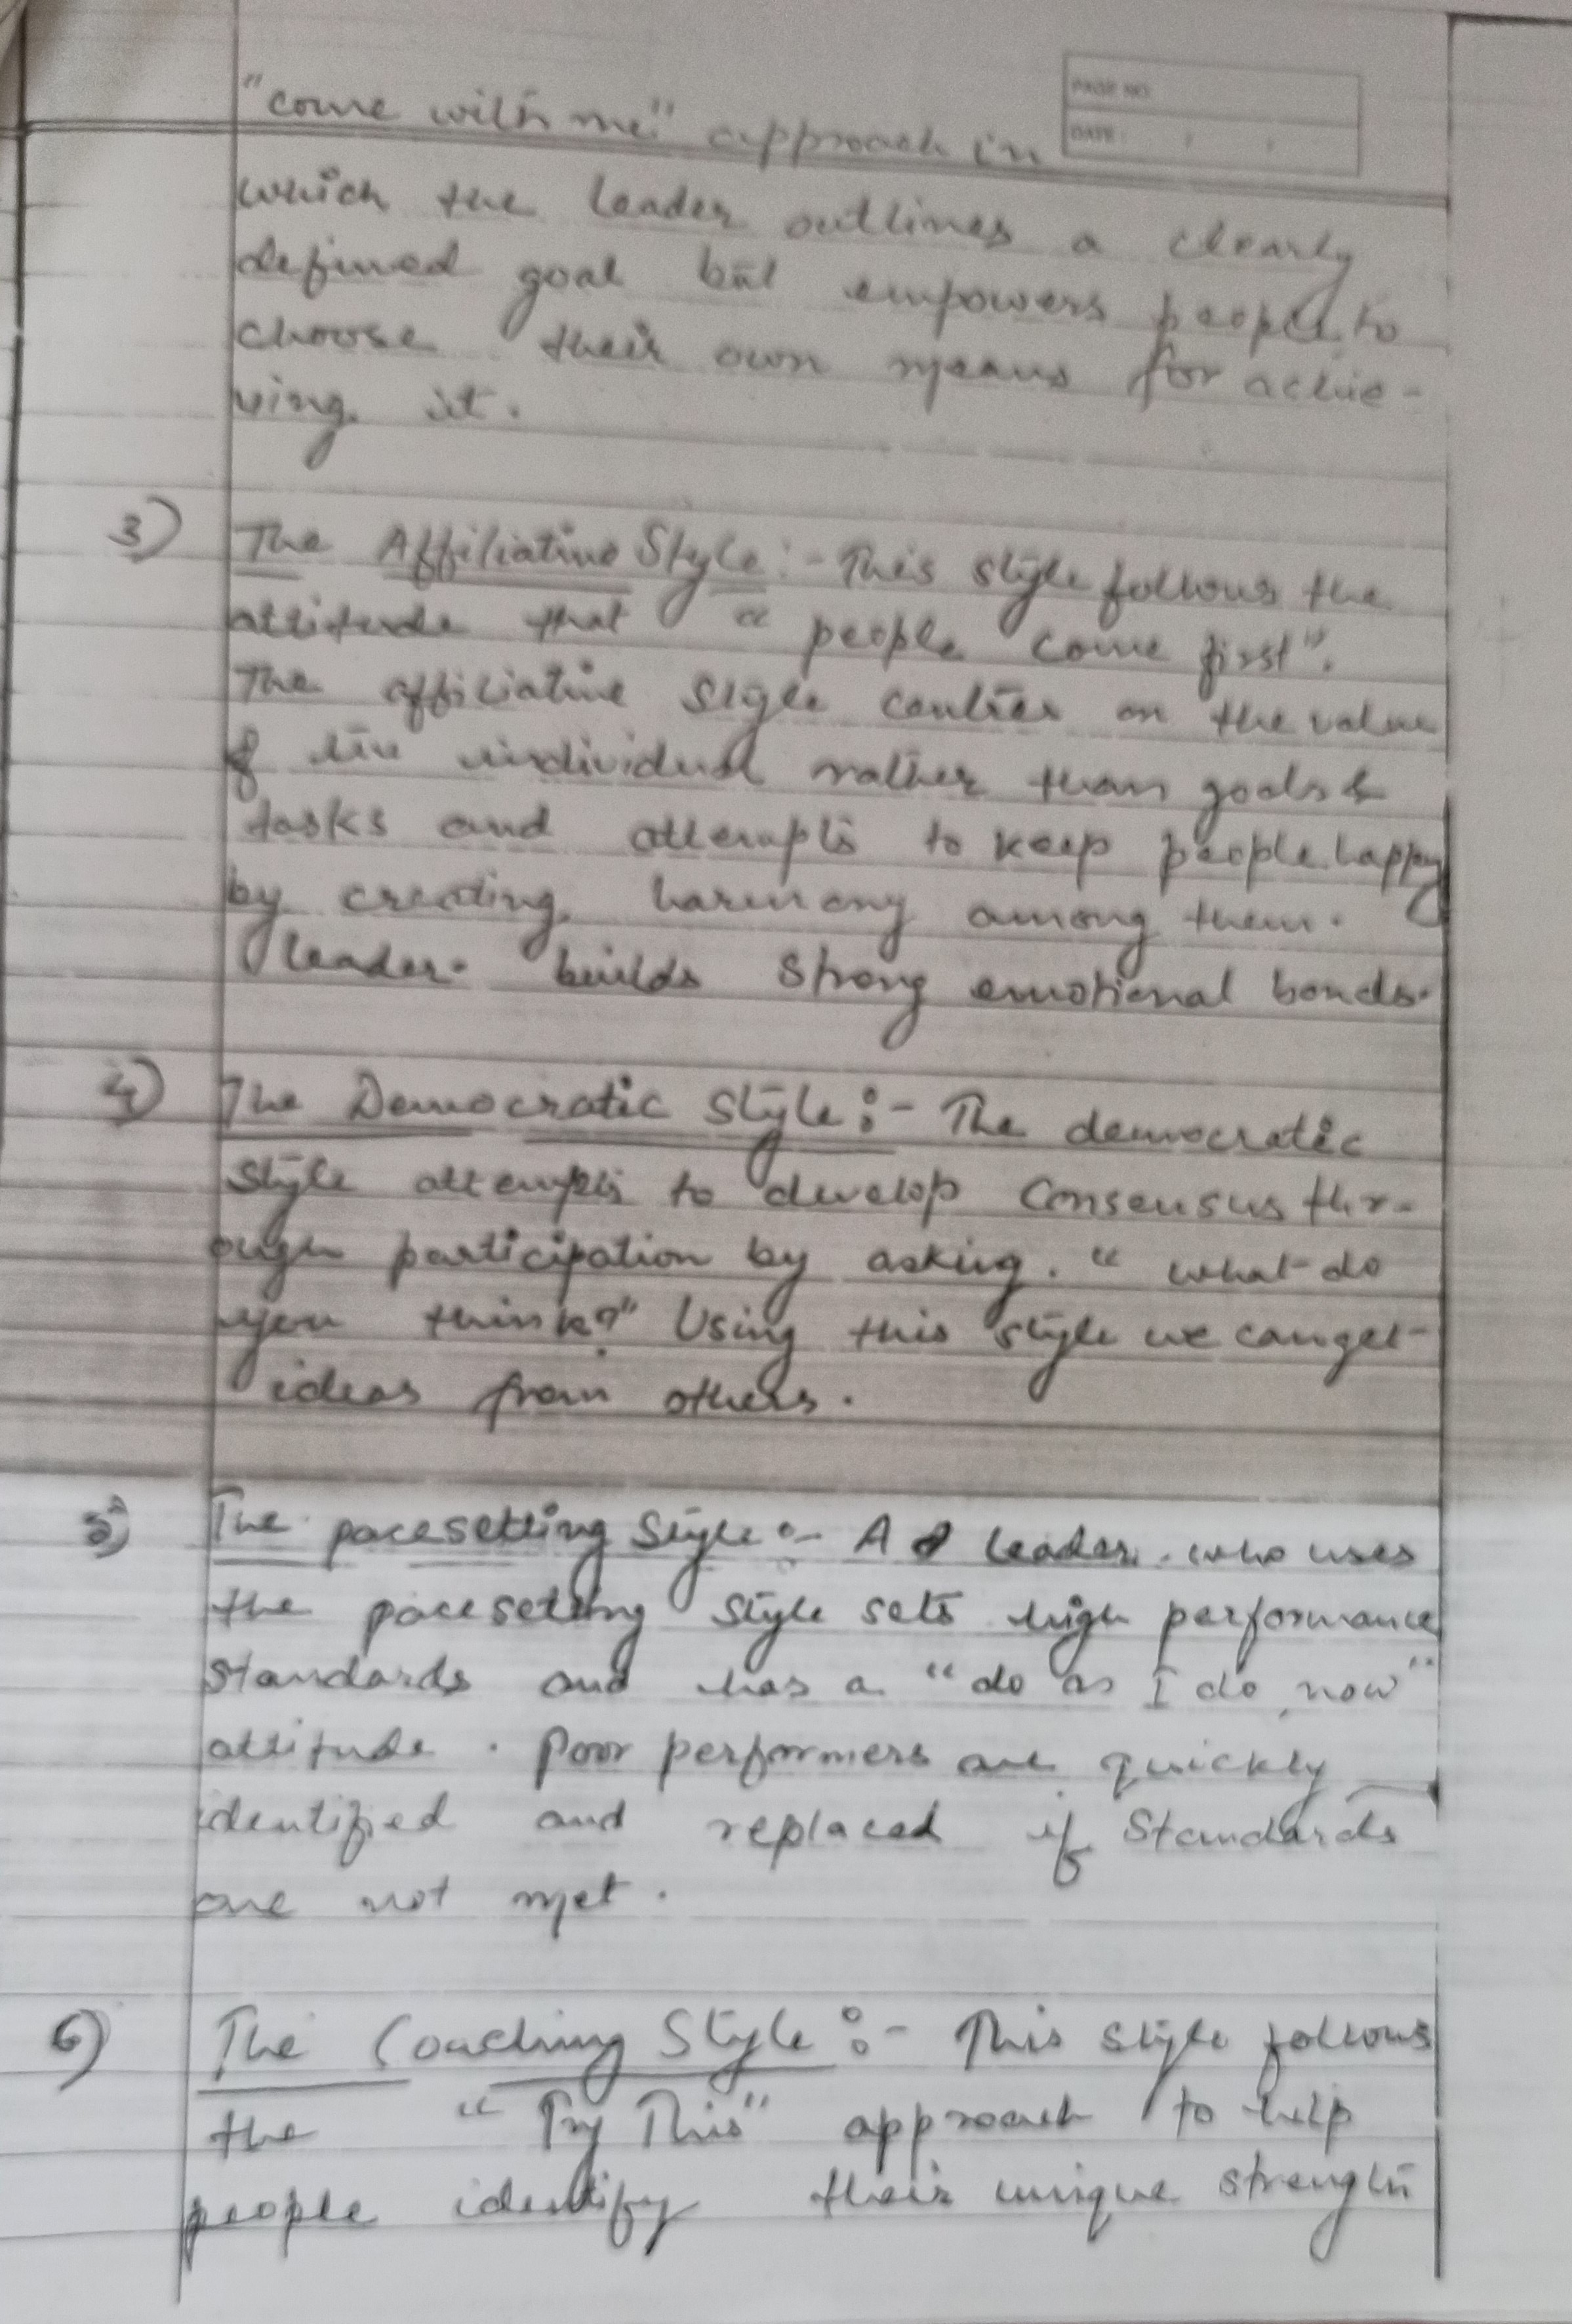 PAGE NO.
DATE: / /
"come with me" approach in
which the leader outlines a clearly
defined goal but empowers people to
choose their own means for achie-
ving it.
3) The Affiliative Style :- This style follows the
attitude that "people come first".
The affiliative style centres on the value
of the individual rather than goals &
tasks and attempts to keep people happy
by creating harmony among them.
leader builds strong emotional bonds.
4) The Democratic Style :- The democratic
style attempts to develop consensus thr-
ough participation by asking. "what do
you think?" Using this style we can get
ideas from others.
5) The pacesetting Style :- A leader who uses
the pacesetting style sets high performance
standards and has a "do as I do, now"
attitude. Poor performers are quickly
identified and replaced if standards
are not met.
6) The Coaching Style :- This style follows
the "Try This" approach to help
people identify their unique strength